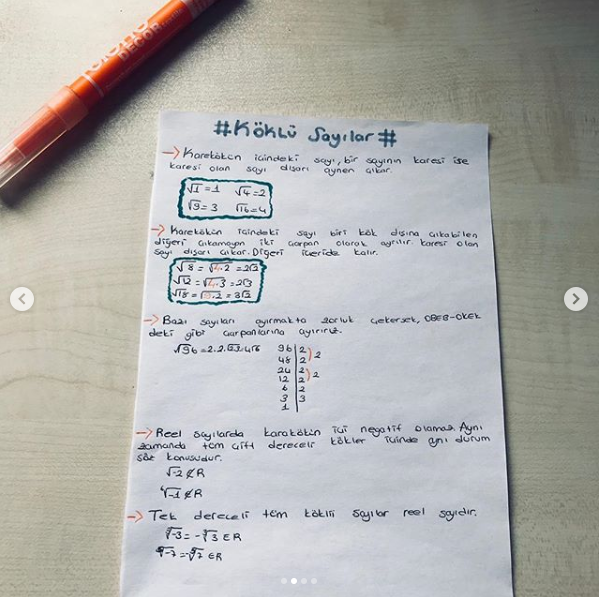 DECOR
#KÖKLÜ Sayılar#
→ Karekökün içindeki sayı, bir sayının karesi ise
karesi olan sayı dışarı aynen çıkar.
√1=1 √4=2
√9=3 √16=4
→ Karekökün içindeki sayı biri kök dışına çıkabilen
diğeri çıkamayan iki çarpan olarak ayrılır. karesi olan
sayı dışarı çıkar. Diğeri içeride kalır.
√8 = √4.2 = 2√2
√12 = √4.3 = 2√3
√18 = √9.2 = 3√2
→ Bazı sayıları ayırmakta zorluk çekersek, OBEB-OKEK
deki gibi çarpanlarına ayırırız.
√96 = 2.2.√2.3 = 4√6
96 | 2
48 | 2 ) 2
24 | 2
12 | 2 ) 2
6 | 2
3 | 3
1
→ Reel sayılarda karakökün içi negatif olamaz. Aynı
zamanda tüm çift dereceli kökler içinde aynı durum
söz konusudur.
√-2 ∉ R
⁴√-1 ∉ R
→ Tek dereceli tüm köklü sayılar reel sayıdır.
³√-3 = -³√3 ∈ R